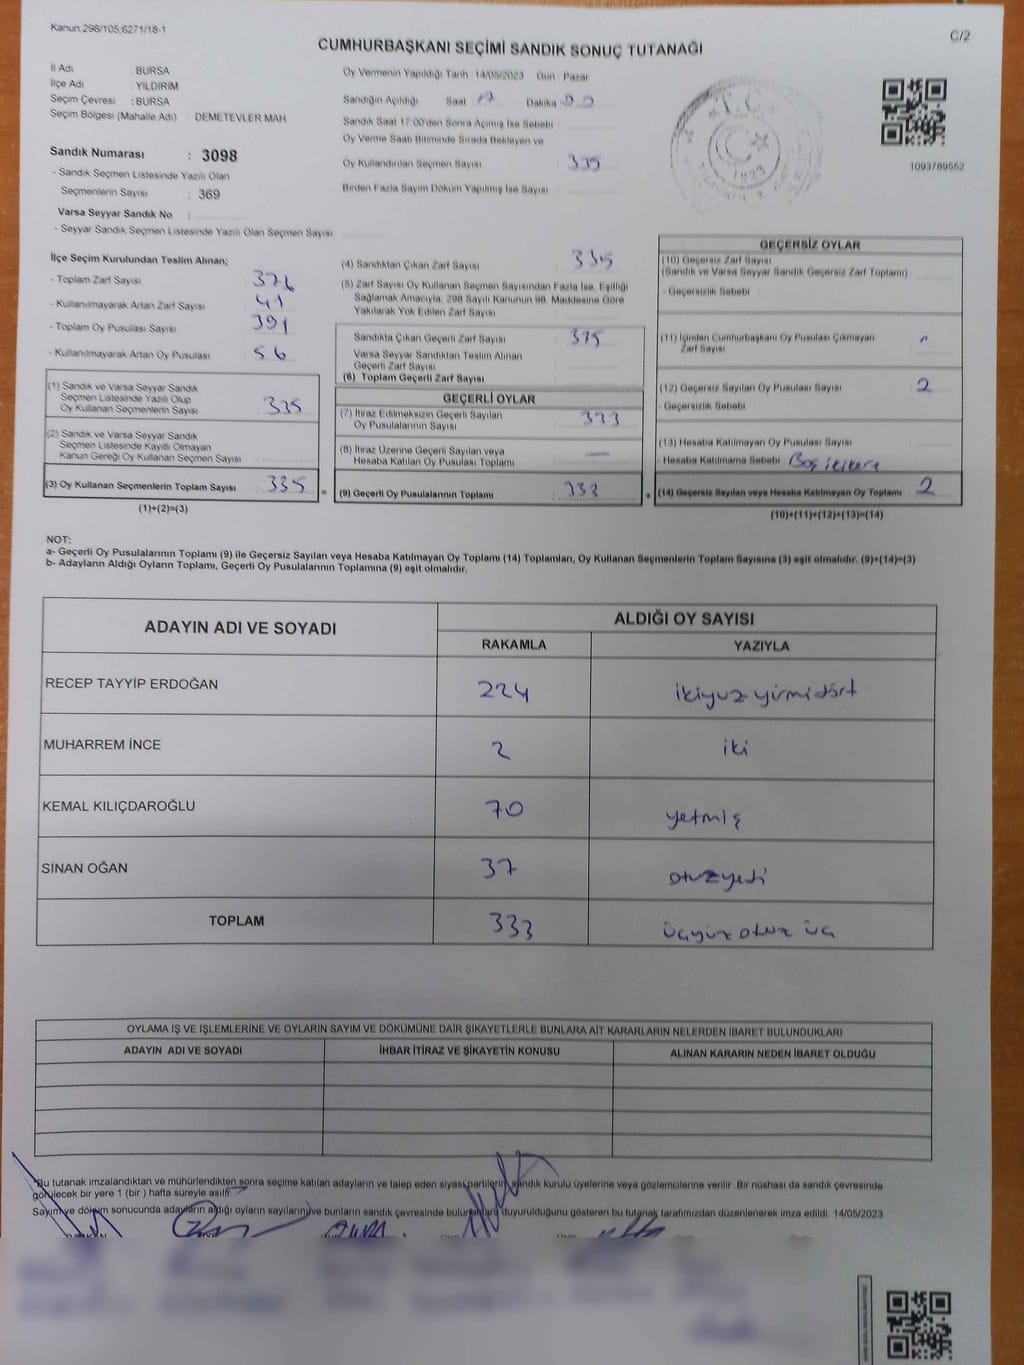 Kanun:298/105,6271/18-1
C/2
CUMHURBAŞKANI SEÇİMİ SANDIK SONUÇ TUTANAĞI
İl Adı : BURSA
İlçe Adı : YILDIRIM
Seçim Çevresi : BURSA
Seçim Bölgesi (Mahalle Adı) : DEMETEVLER MAH.
Sandık Numarası : 3098
- Sandık Seçmen Listesinde Yazılı Olan
Seçmenlerin Sayısı : 369
Varsa Seyyar Sandık No :
- Seyyar Sandık Seçmen Listesinde Yazılı Olan Seçmen Sayısı
Oy Vermenin Yapıldığı Tarih 14/05/2023 Gün : Pazar
Sandığın Açıldığı Saat 17 Dakika
Sandık Saat 17:00'den Sonra Açılmış İse Sebebi
Oy Verme Saati Bitiminde Sırada Bekleyen ve
Oy Kullandırılan Seçmen Sayısı 335
Birden Fazla Sayım Döküm Yapılmış İse Sayısı
T.C.
1923
1093789552
İlçe Seçim Kurulundan Teslim Alınan;
- Toplam Zarf Sayısı 376
- Kullanılmayarak Artan Zarf Sayısı 41
- Toplam Oy Pusulası Sayısı 391
- Kullanılmayarak Artan Oy Pusulası 56
(1) Sandık ve Varsa Seyyar Sandık
Seçmen Listesinde Yazılı Olup
Oy Kullanan Seçmenlerin Sayısı : 335
(2) Sandık ve Varsa Seyyar Sandık
Seçmen Listesinde Kayıtlı Olmayan
Kanun Gereği Oy Kullanan Seçmen Sayısı :
(3) Oy Kullanan Seçmenlerin Toplam Sayısı : 335 =
(1)+(2)=(3)
(4) Sandıktan Çıkan Zarf Sayısı 335
(5) Zarf Sayısı Oy Kullanan Seçmen Sayısından Fazla İse, Eşitliği
Sağlamak Amacıyla, 298 Sayılı Kanunun 98. Maddesine Göre
Yakılarak Yok Edilen Zarf Sayısı
Sandıkta Çıkan Geçerli Zarf Sayısı
Varsa Seyyar Sandıktan Teslim Alınan
Geçerli Zarf Sayısı
(6) Toplam Geçerli Zarf Sayısı
GEÇERLİ OYLAR
(7) İtiraz Edilmeksizin Geçerli Sayılan
Oy Pusulalarının Sayısı 333
(8) İtiraz Üzerine Geçerli Sayılan veya
Hesaba Katılan Oy Pusulası Toplamı : —
(9) Geçerli Oy Pusulalarının Toplamı : 333 +
GEÇERSİZ OYLAR
(10) Geçersiz Zarf Sayısı
(Sandık ve Varsa Seyyar Sandık Geçersiz Zarf Toplamı)
- Geçersizlik Sebebi
(11) İçinden Cumhurbaşkanı Oy Pusulası Çıkmayan
Zarf Sayısı
(12) Geçersiz Sayılan Oy Pusulası Sayısı 2
- Geçersizlik Sebebi
(13) Hesaba Katılmayan Oy Pusulası Sayısı
- Hesaba Katılmama Sebebi
(14) Geçersiz Sayılan veya Hesaba Katılmayan Oy Toplamı : 2
(10)+(11)+(12)+(13)=(14)
NOT:
a- Geçerli Oy Pusulalarının Toplamı (9) ile Geçersiz Sayılan veya Hesaba Katılmayan Oy Toplamı (14) Toplamları, Oy Kullanan Seçmenlerin Toplam Sayısına (3) eşit olmalıdır. (9)+(14)=(3)
b- Adayların Aldığı Oyların Toplamı, Geçerli Oy Pusulalarının Toplamına (9) eşit olmalıdır.
ADAYIN ADI VE SOYADI
ALDIĞI OY SAYISI
RAKAMLA YAZIYLA
RECEP TAYYİP ERDOĞAN 224 ikiyuz yirmidört
MUHARREM İNCE 2 iki
KEMAL KILIÇDAROĞLU 70 yetmiş
SİNAN OĞAN 37 otuzyedi
TOPLAM 333 üçyüz otuz üç
OYLAMA İŞ VE İŞLEMLERİNE VE OYLARIN SAYIM VE DÖKÜMÜNE DAİR ŞİKAYETLERLE BUNLARA AİT KARARLARIN NELERDEN İBARET BULUNDUKLARI
ADAYIN ADI VE SOYADI İHBAR İTİRAZ VE ŞİKAYETİN KONUSU ALINAN KARARIN NEDEN İBARET OLDUĞU
*Bu tutanak imzalandıktan ve mühürlendikten sonra seçime katılan adayların ve talep eden siyasi partilerin sandık kurulu üyelerine veya gözlemcilerine verilir. Bir nüshası da sandık çevresinde
görülecek bir yere 1 (bir ) hafta süreyle asılır.
Sayım ve döküm sonucunda adayların aldığı oyların sayılarını ve bunların sandık çevresinde bulunanlara duyurulduğunu gösteren bu tutanak tarafımızdan düzenlenerek imza edildi. 14/05/2023